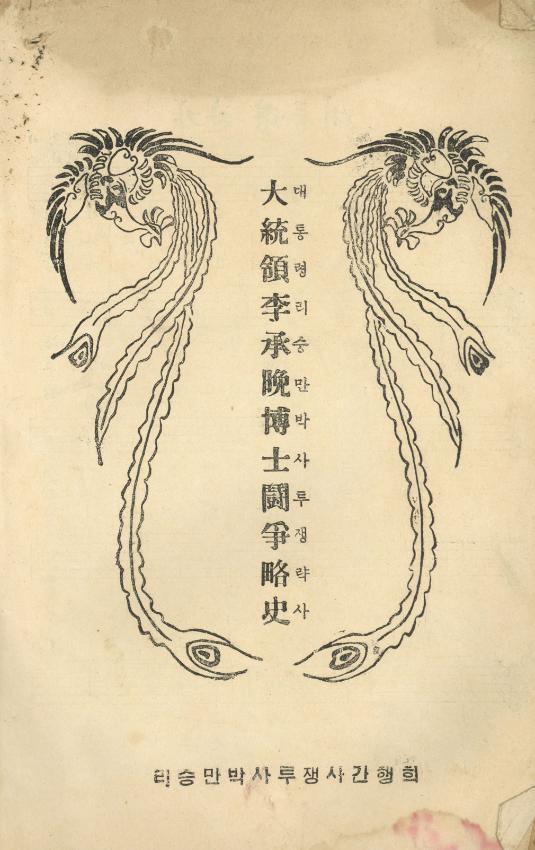 大統領李承晩博士鬪爭略史
대통령리승만박사투쟁략사
리승만박사투쟁사간행회